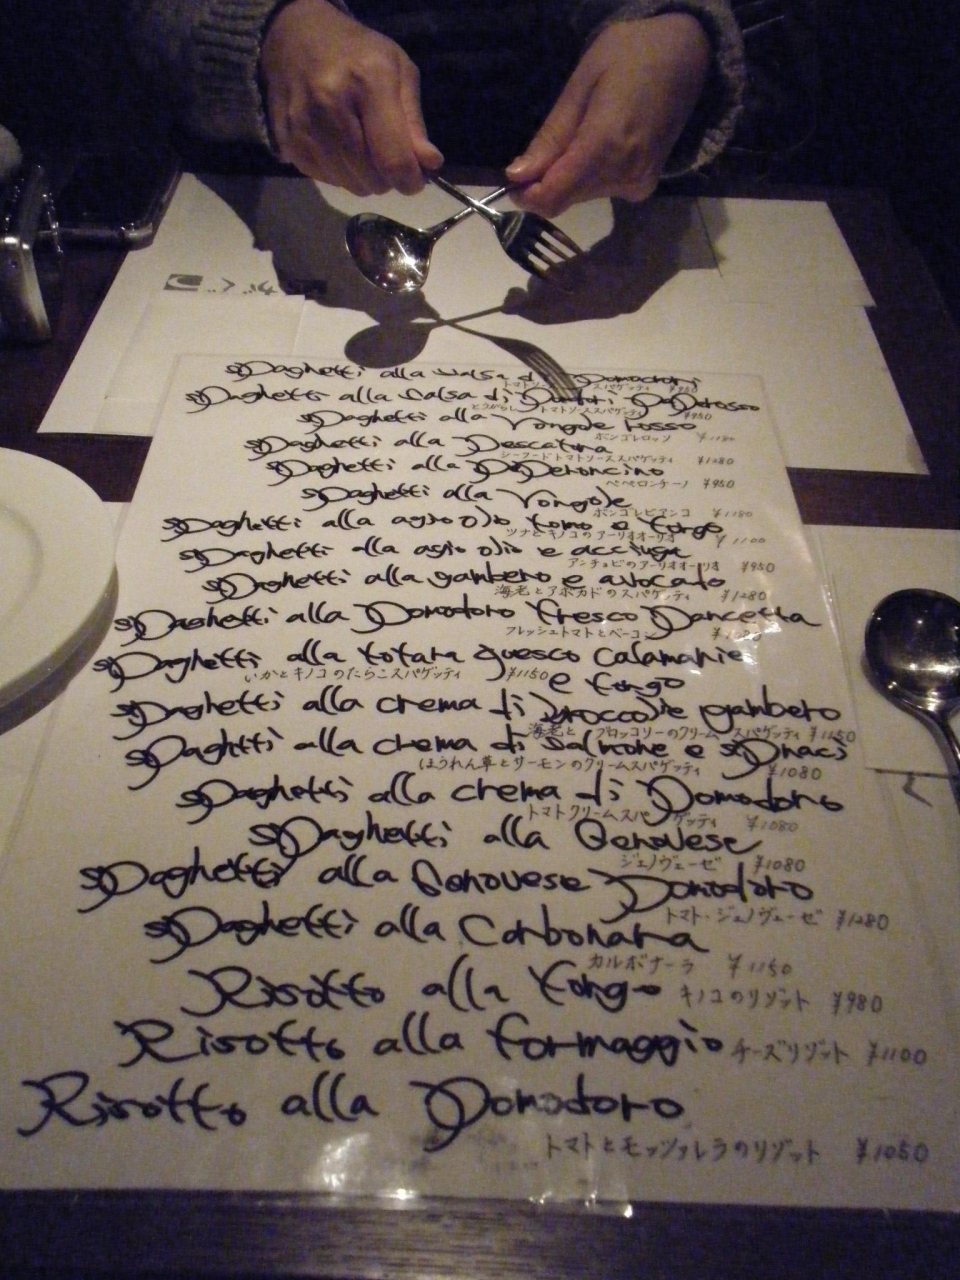 spaghetti alla salsa di pomodori
トマトソーススパゲッティ ¥950
spaghetti alla salsa di pomodori peperosso
とうがらし トマトソーススパゲッティ ¥950
spaghetti alla vongole rosso
ボンゴレロッソ ¥1180
spaghetti alla pescatora
シーフードトマトソーススパゲッティ ¥1280
spaghetti alla peperoncino
ペペロンチーノ ¥950
spaghetti alla vongole
ボンゴレビアンコ ¥1180
spaghetti alla aglio olio tonno e fungo
ツナとキノコのアーリオオーリオ ¥1100
spaghetti alla aglio olio e acciuga
アンチョビのアーリオオーリオ ¥950
spaghetti alla gambero e avocado
海老とアボカドのスパゲッティ ¥1280
spaghetti alla pomodoro fresco pancetta
フレッシュトマトとベーコン
spaghetti alla totara guesco calamarie
e fungo
いかとキノコのたらこスパゲッティ ¥1150
spaghetti alla crema di broccolie gambero
海老と ブロッコリーのクリームスパゲッティ ¥1150
spaghetti alla crema di salmone e spinaci
ほうれん草とサーモンのクリームスパゲッティ ¥1080
spaghetti alla crema di pomodoro
トマトクリームスパゲッティ ¥1080
spaghetti alla Genovese
ジェノヴェーゼ ¥1080
spaghetti alla Genovese pomodoro
トマト・ジェノヴェーゼ ¥1280
spaghetti alla Carbonara
カルボナーラ ¥1150
Risotto alla fungo キノコのリゾット ¥980
Risotto alla formaggio チーズリゾット ¥1100
Risotto alla pomodoro
トマトとモッツァレラのリゾット ¥1050